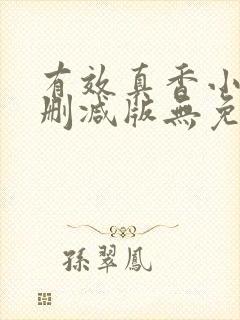 有效真香小
删减版無免
孫翠鳳